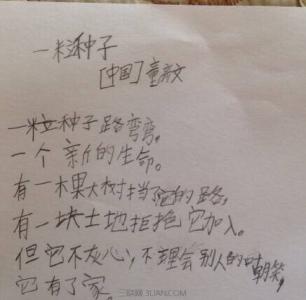 一粒种子
[中国]童齐文
一粒种子路弯弯。
一个新的生命。
有一棵大树挡了它的路,
有一块土地拒绝它加入。
但它不灰心,不理会别人的嘲笑,
它有了家。
三联网 3LIAN.COM